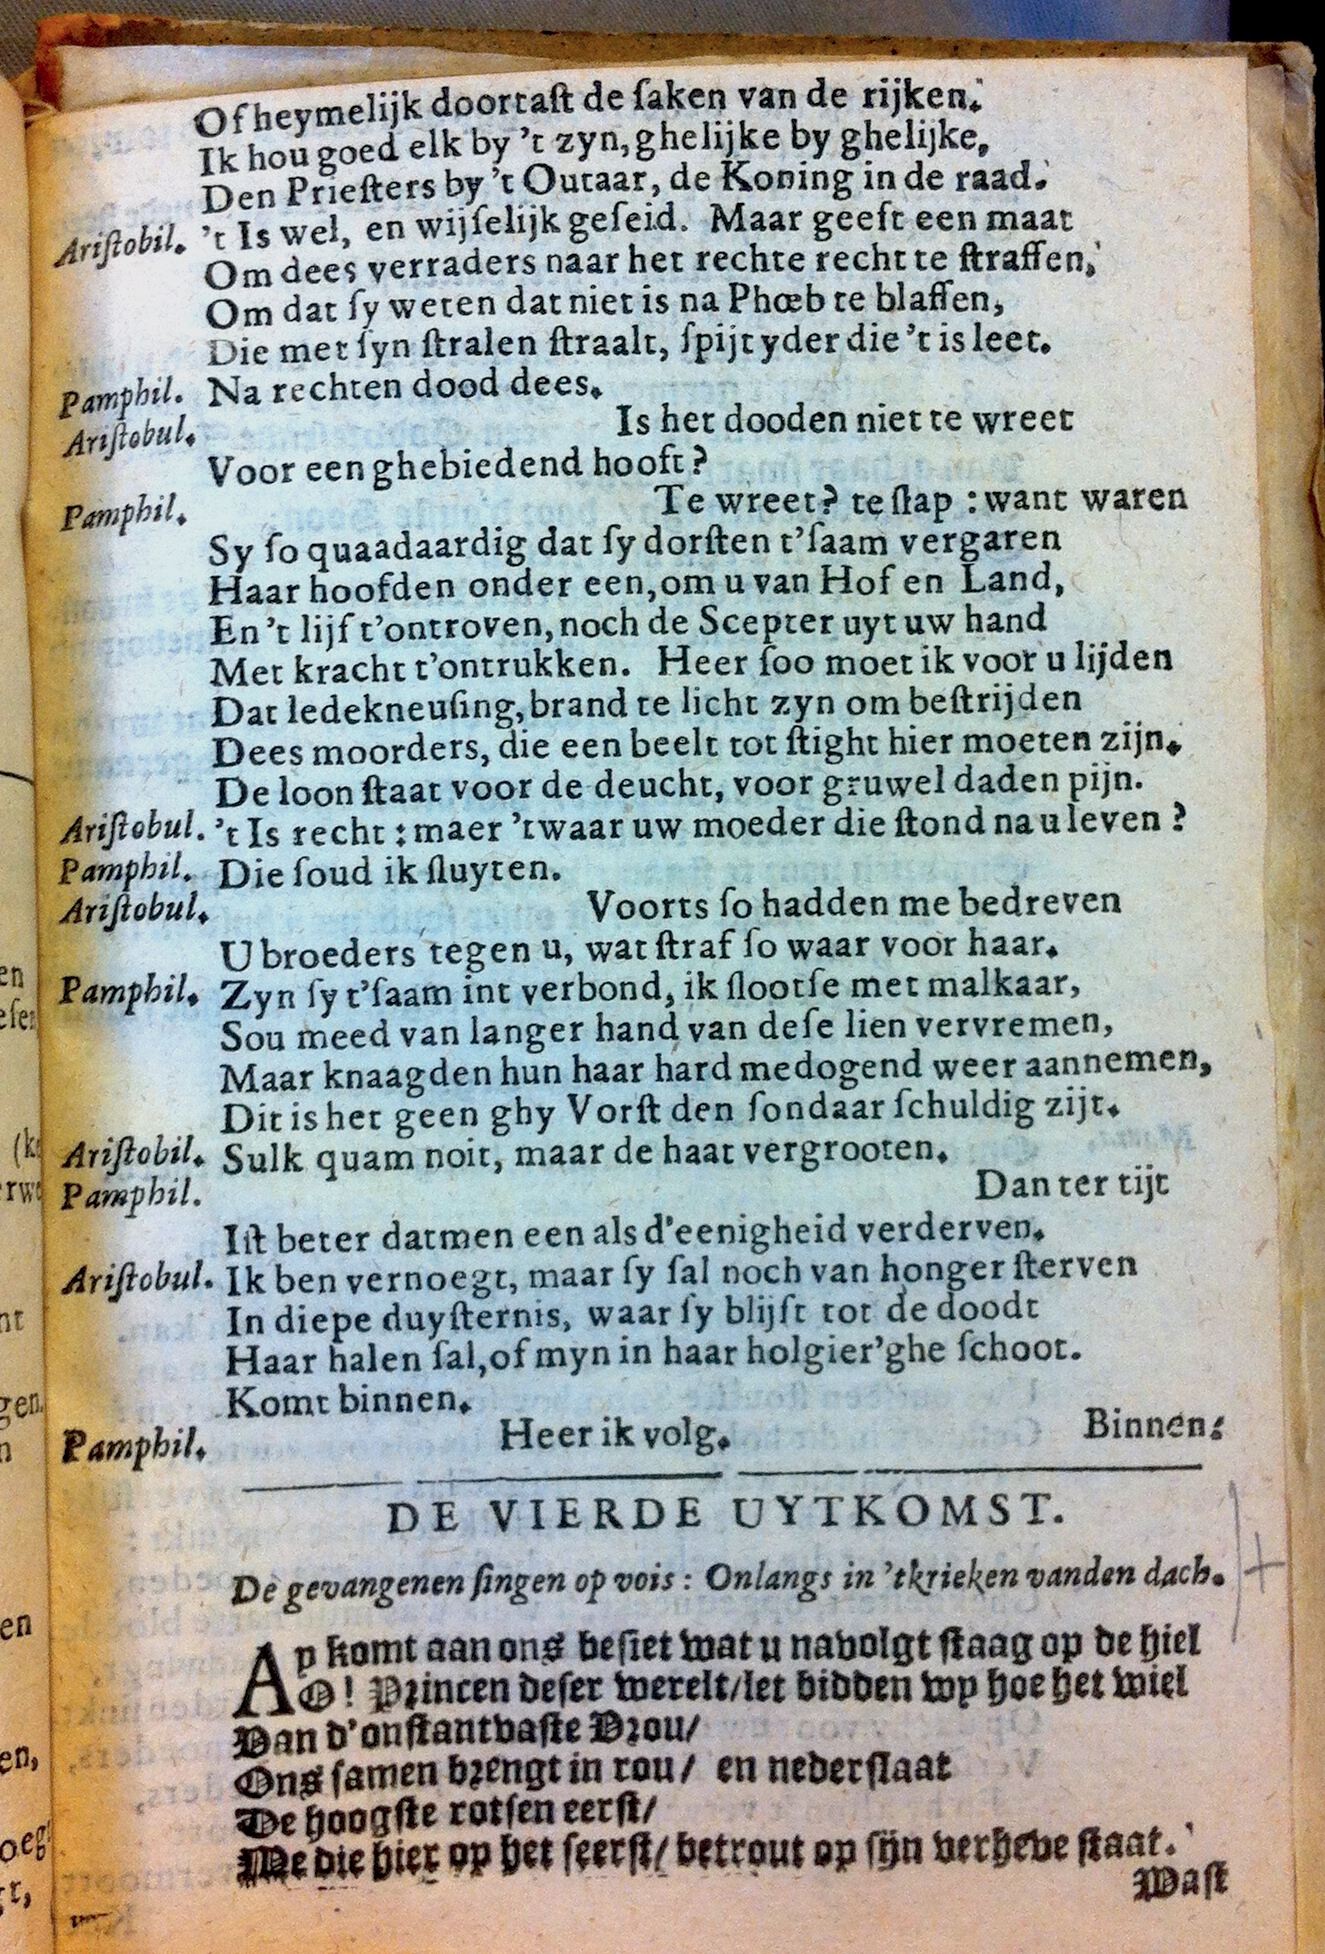 Of heymelijk doortaſt de ſaken van de rijken.
Ik hou goed elk by 't zyn, ghelijke by ghelijke,
Den Prieſters by 't Outaar, de Koning in de raad.
Ariſtobil. 't Is wel, en wijſelijk geſeid. Maar geeft een maat
Om dees verraders naar het rechte recht te ſtraffen,
Om dat ſy weten dat niet is na Phœb te blaffen,
Die met ſyn ſtralen ſtraalt, ſpijt yder die 't is leet.
Pamphil. Na rechten dood dees.
Ariſtobul. Is het dooden niet te wreet
Voor een ghebiedend hooft?
Pamphil. Te wreet? te ſlap : want waren
Sy ſo quaadaardig dat ſy dorſten t'ſaam vergaren
Haar hoofden onder een, om u van Hof en Land,
En 't lijf t'ontroven, noch de Scepter uyt uw hand
Met kracht t'ontrukken. Heer ſoo moet ik voor u lijden
Dat ledekneuſing, brand te licht zyn om beſtrijden
Dees moorders, die een beelt tot ſtight hier moeten zijn.
De loon ſtaat voor de deucht, voor gruwel daden pijn.
Ariſtobul. 't Is recht : maer 't waar uw moeder die ſtond na u leven ?
Pamphil. Die ſoud ik ſluyten.
Ariſtobul. Voorts ſo hadden me bedreven
U broeders tegen u, wat ſtraf ſo waar voor haar.
Pamphil. Zyn ſy t'ſaam int verbond, ik ſlootſe met malkaar,
Sou meed van langer hand van deſe lien vervremen,
Maar knaagden hun haar hard medogend weer aannemen,
Dit is het geen ghy Vorſt den ſondaar ſchuldig zijt.
Ariſtobil. Sulk quam noit, maar de haat vergrooten.
Pamphil. Dan ter tijt
Iſt beter datmen een als d'eenigheid verderven.
Ariſtobul. Ik ben vernoegt, maar ſy ſal noch van honger ſterven
In diepe duyſternis, waar ſy blijft tot de doodt
Haar halen ſal, of myn in haar holgier'ghe ſchoot.
Komt binnen.
Pamphil. Heer ik volg. Binnen.
DE VIERDE UYTKOMST.
De gevangenen ſingen op vois : Onlangs in 't krieken vanden dach.
Ay komt aan ons beſiet wat u navolgt ſtaag op de hiel
O! Princen deſer werelt/ let bidden wy hoe het wiel
Van d'onſtantvaſte Vrou/
Ons ſamen brengt in rou/ en nederſlaat
De hoogſte rotſen eerſt/
Me die hier op het ſeerſt/ betrout op ſijn verheve ſtaat.
Waſt